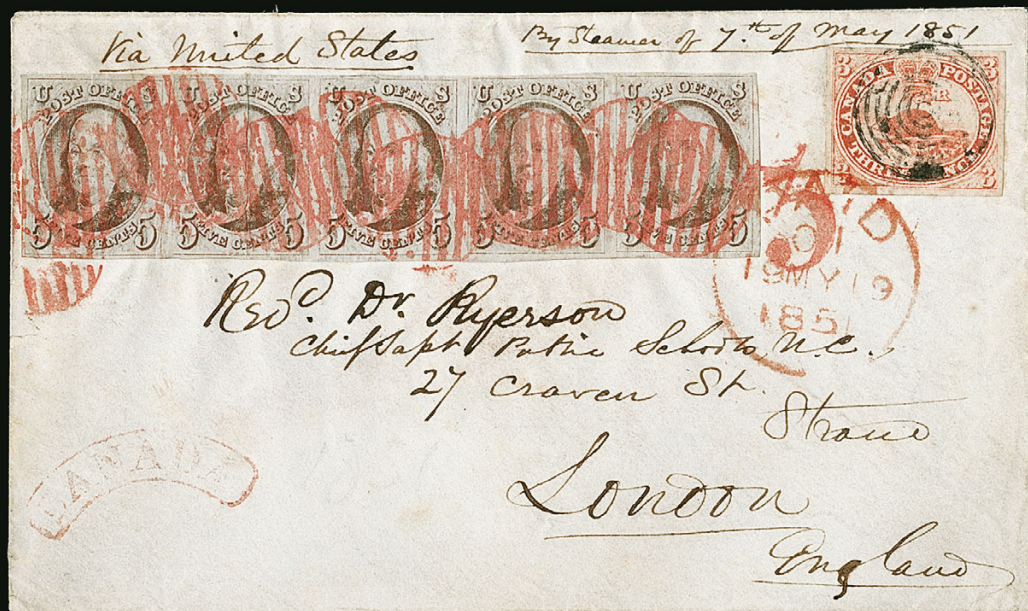 Via United States
By Steamer of 7th of May 1851
U S
POST OFFICE
5 FIVE CENTS 5
U S
POST OFFICE
5 FIVE CENTS 5
U S
POST OFFICE
5 FIVE CENTS 5
U S
POST OFFICE
5 FIVE CENTS 5
U S
POST OFFICE
5 FIVE CENTS 5
3 3
CANADA POSTAGE
THREE PENCE
3 3
PAID
19 MY 19
1851
Revd. Dr. Ryerson
Chief Supt Public Schools U.C.
27 Craven St.
Strand
London
England
CANADA